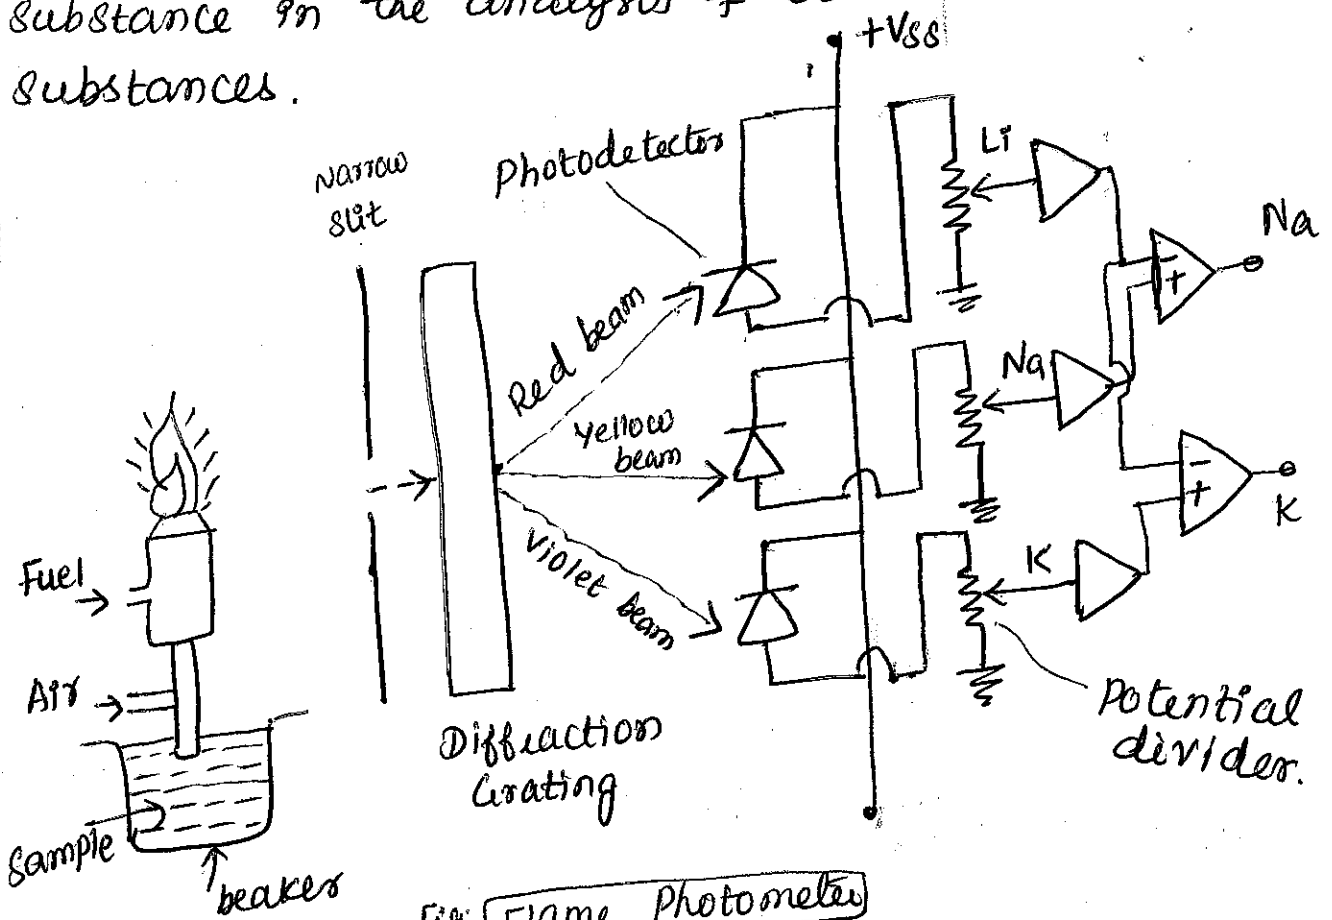 substance in the analysis of
substances.
+Vss
Narrow
slit
Photodetector
Li
Na
Red beam
Yellow
beam
Na
Violet beam
K
K
Fuel
Air
Sample
beaker
Diffraction
Grating
Potential
divider.
Fig: Flame Photometer